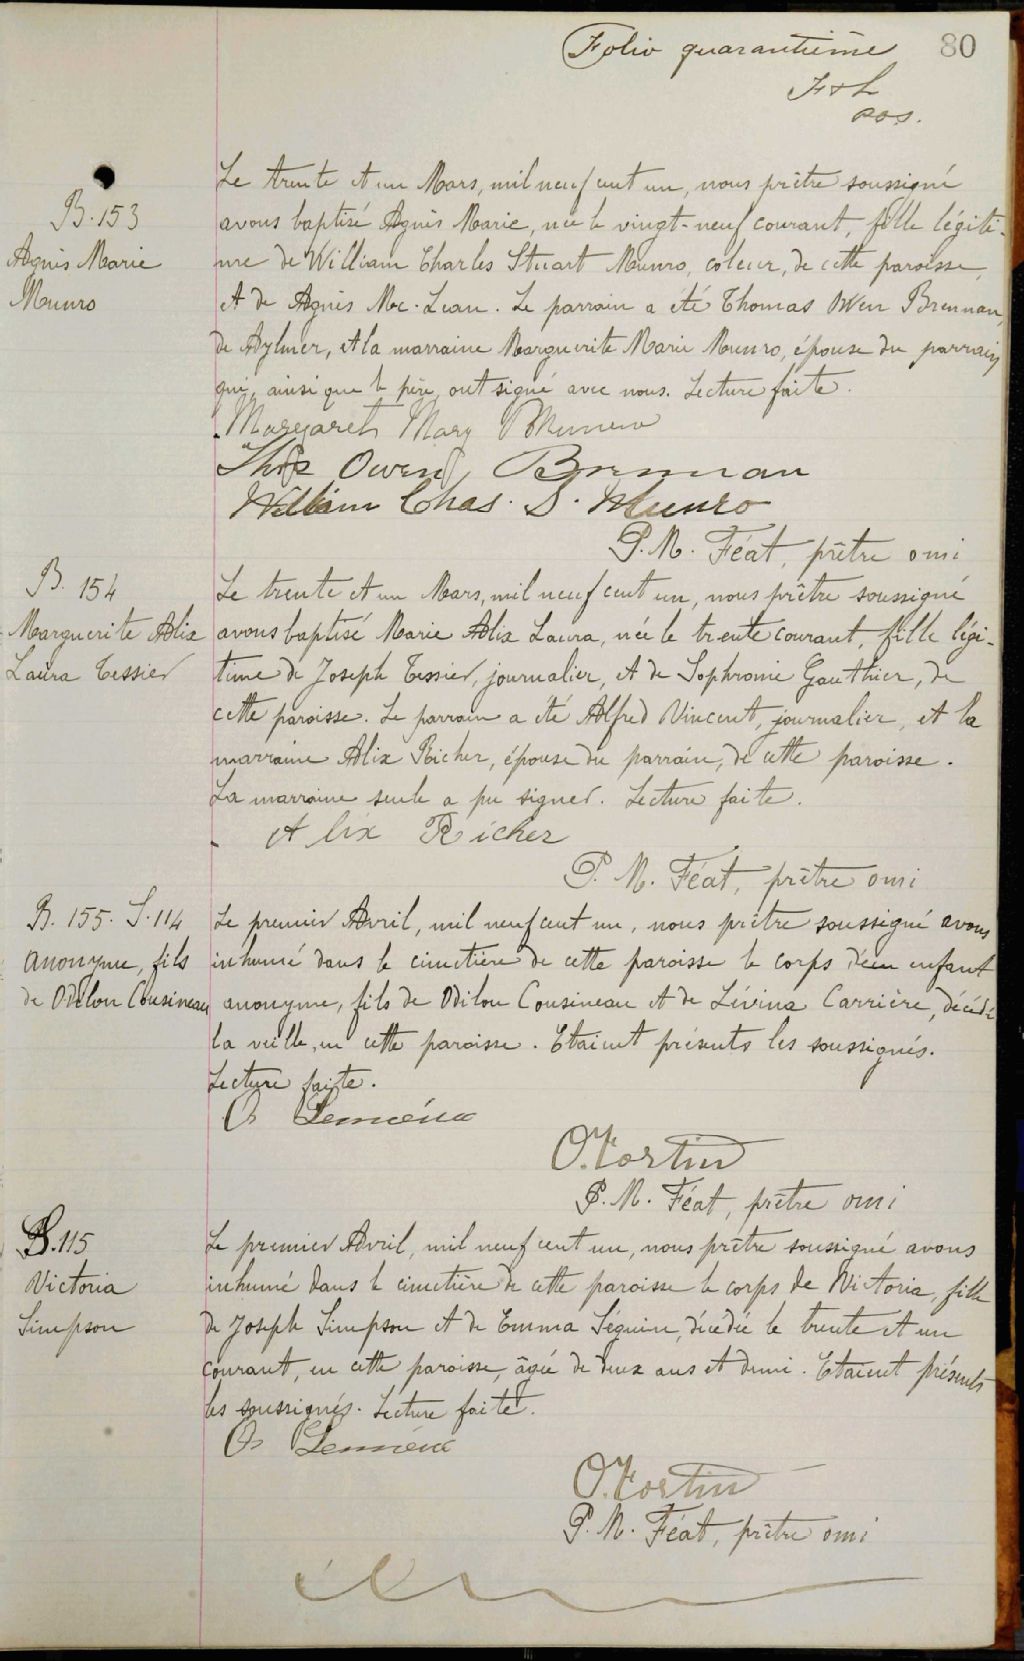 Folio quarantième 80
F & L
P.O.S.
B. 153
Agnès Marie
Munro
Le trente et un Mars, mil neuf cent un, nous prêtre soussigné
avons baptisé Agnès Marie, née le vingt-neuf courant, fille légiti-
me de William Charles Stuart Munro, coleur, de cette paroisse,
et de Agnès Mc. Lean. Le parrain a été Thomas Owen Brennan,
de Aylmer, et la marraine Marguerite Marie Munro, épouse du parrain
qui, ainsi que le père, ont signé avec nous. Lecture faite.
Margaret Mary Munro
Thos Owen Brennan
William Chas. S. Munro
P. M. Féat, prêtre omi
B. 154
Marguerite Alix
Laura Tessier
Le trente et un Mars, mil neuf cent un, nous prêtre soussigné
avons baptisé Marie Alix Laura, née le trente courant, fille légi-
time de Joseph Tessier, journalier, et de Sophronie Gauthier, de
cette paroisse. Le parrain a été Alfred Vincent, journalier, et la
marraine Alix Richer, épouse du parrain, de cette paroisse.
La marraine seule a pu signer. Lecture faite.
Alix Richer
P. M. Féat, prêtre omi
B. 155. S. 114
Anonyme, fils
de Odilon Cousineau
Le premier Avril, mil neuf cent un, nous prêtre soussigné avons
inhumé dans le cimetière de cette paroisse le corps d'un enfant
anonyme, fils de Odilon Cousineau et de Lévina Carrière, décédé
la veille, en cette paroisse. Etaient présents les soussignés.
Lecture faite.
Os Lemieux
O. Fortin
P. M. Féat, prêtre omi
S. 115
Victoria
Simpson
Le premier Avril, mil neuf cent un, nous prêtre soussigné avons
inhumé dans le cimetière de cette paroisse le corps de Victoria, fille
de Joseph Simpson et de Emma Séguin, décédée le trente et un
courant, en cette paroisse, âgée de deux ans et demi. Etaient présents
les soussignés. Lecture faite.
Os Lemieux
O. Fortin
P. M. Féat, prêtre omi